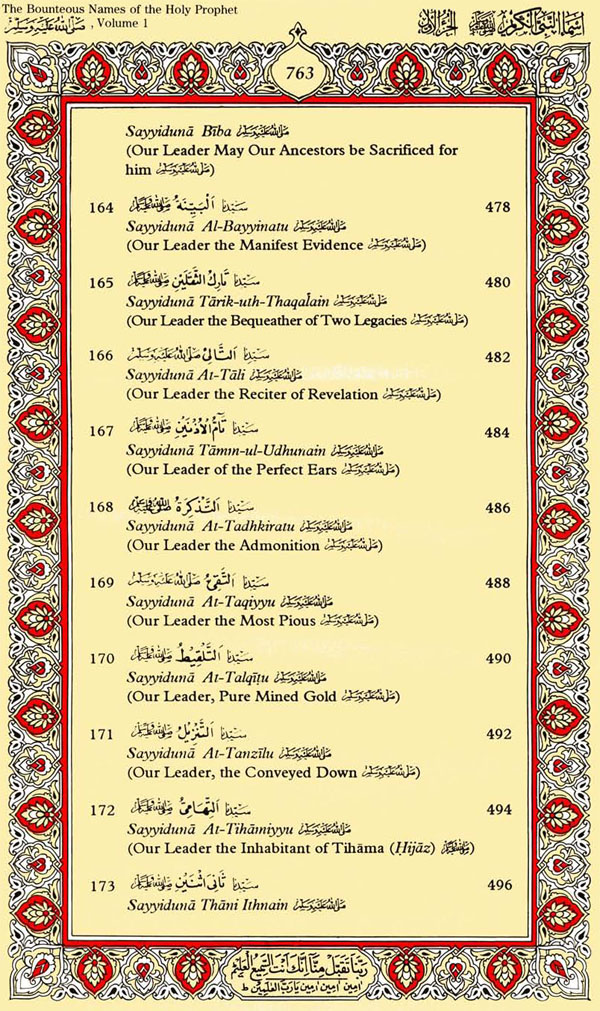 The Bounteous Names of the Holy Prophet
صلى الله عليه وسلم , Volume 1
اسماء النبي الكريم صلى الله عليه وسلم الجزء الاول
763
Sayyidunā Bība صلى الله عليه وسلم
(Our Leader May Our Ancestors be Sacrificed for
him صلى الله عليه وسلم)
164 سَيِّدُنَا اَلْبَيِّنَةُ صلى الله عليه وسلم 478
Sayyidunā Al-Bayyinatu صلى الله عليه وسلم
(Our Leader the Manifest Evidence صلى الله عليه وسلم)
165 سَيِّدُنَا تَارِكُ الثَّقَلَيْنِ صلى الله عليه وسلم 480
Sayyidunā Tārik-uth-Thaqalain صلى الله عليه وسلم
(Our Leader the Bequeather of Two Legacies صلى الله عليه وسلم)
166 سَيِّدُنَا اَلتَّالِيْ صلى الله عليه وسلم 482
Sayyidunā At-Tāli صلى الله عليه وسلم
(Our Leader the Reciter of Revelation صلى الله عليه وسلم)
167 سَيِّدُنَا تَامُّ الْاُذُنَيْنِ صلى الله عليه وسلم 484
Sayyidunā Tāmm-ul-Udhunain صلى الله عليه وسلم
(Our Leader of the Perfect Ears صلى الله عليه وسلم)
168 سَيِّدُنَا اَلتَّذْكِرَةُ صلى الله عليه وسلم 486
Sayyidunā At-Tadhkiratu صلى الله عليه وسلم
(Our Leader the Admonition صلى الله عليه وسلم)
169 سَيِّدُنَا اَلتَّقِيُّ صلى الله عليه وسلم 488
Sayyidunā At-Taqiyyu صلى الله عليه وسلم
(Our Leader the Most Pious صلى الله عليه وسلم)
170 سَيِّدُنَا اَلتَّلْقِيْطُ صلى الله عليه وسلم 490
Sayyidunā At-Talqīṭu صلى الله عليه وسلم
(Our Leader, Pure Mined Gold صلى الله عليه وسلم)
171 سَيِّدُنَا اَلتَّنْزِيْلُ صلى الله عليه وسلم 492
Sayyidunā At-Tanzīlu صلى الله عليه وسلم
(Our Leader, the Conveyed Down صلى الله عليه وسلم)
172 سَيِّدُنَا اَلتِّهَامِيُّ صلى الله عليه وسلم 494
Sayyidunā At-Tihāmiyyu صلى الله عليه وسلم
(Our Leader the Inhabitant of Tihama (Ḥijāz) صلى الله عليه وسلم)
173 سَيِّدُنَا ثَانِيَ اثْنَيْنِ صلى الله عليه وسلم 496
Sayyidunā Thāni Ithnain صلى الله عليه وسلم
رَبَّنَا تَقَبَّلْ مِنَّا اِنَّكَ اَنْتَ السَّمِيْعُ الْعَلِيْمُ
امين امين امين يا رب العلمين ط